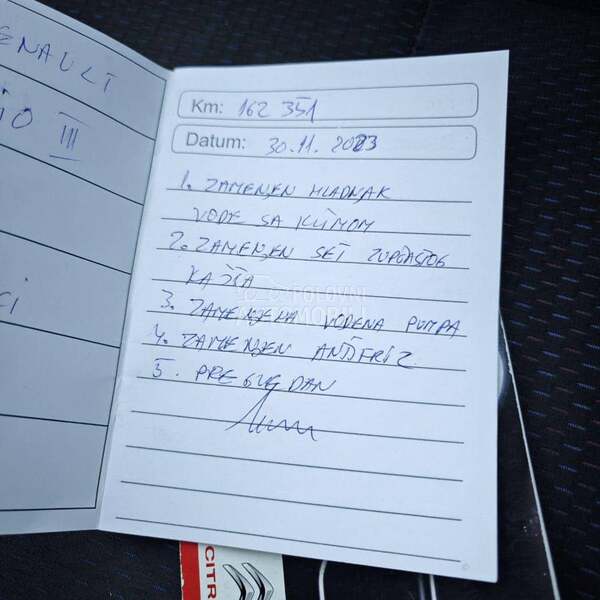 ENAULT
IO III
ci
Km: 162 351
Datum: 30.11.2023
1. ZAMENJEN HLADNJAK
VODE SA KLIMOM
2. ZAMENJEN SET ZUPČASTOG
KAIŠA
3. ZAMENJENA VODENA PUMPA
4. ZAMENJEN ANTIFRIZ
5. PREGLEDAN
POLOVNI
AUTOMOBILI
CITR